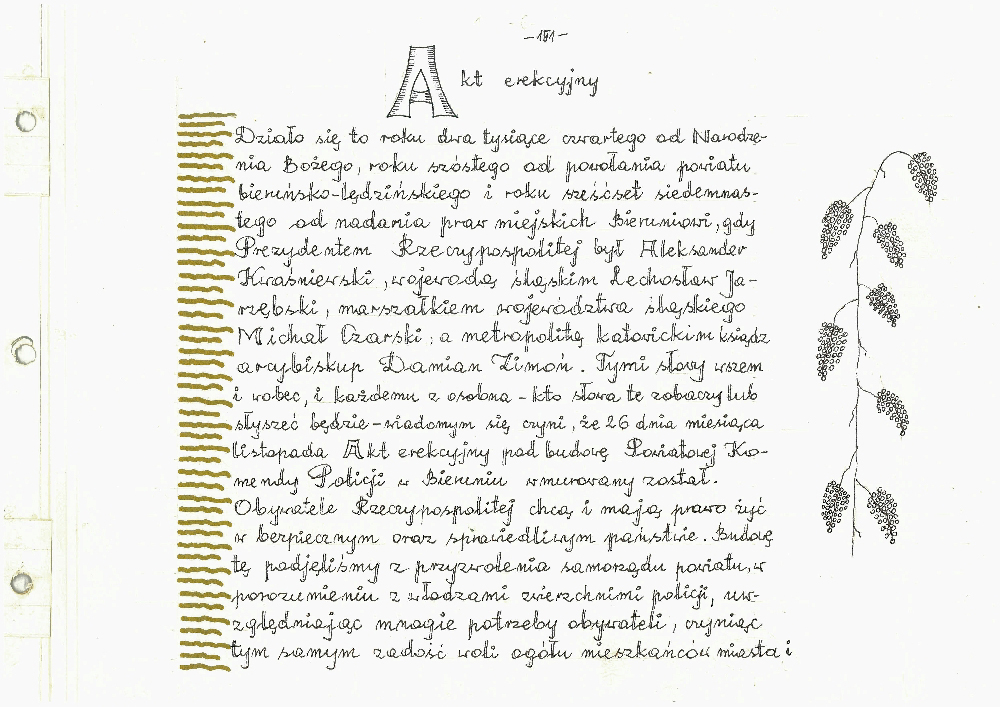 -191-
Akt erekcyjny
Działo się to roku dwa tysiące czwartego od Narodze-
nia Bożego, roku szóstego od powołania powiatu
bieruńsko-lędzińskiego i roku sześćset siedemnas-
tego od nadania praw miejskich Bieruniowi, gdy
Prezydentem Rzeczypospolitej był Aleksander
Kwaśniewski, wojewodą śląskim Lechosław Ja-
rzębski, marszałkiem województwa śląskiego
Michał Czarski, a metropolitą katowickim ksiądz
arcybiskup Damian Zimoń. Tymi słowy wszem
i wobec, i każdemu z osobna - kto słowa te zobaczy lub
słyszeć będzie - wiadomym się czyni, że 26 dnia miesiąca
listopada Akt erekcyjny pod budowę Powiatowej Ko-
mendy Policji w Bieruniu wmurowany został.
Obywatele Rzeczypospolitej chcą i mają prawo żyć
w bezpiecznym oraz sprawiedliwym państwie. Budowę
tę podjęliśmy z przyzwolenia samorządu powiatu, w
porozumieniu z władzami zwierzchnimi policji, uw-
zględniając mnogie potrzeby obywateli, czyniąc
tym samym zadość woli ogółu mieszkańców miasta i